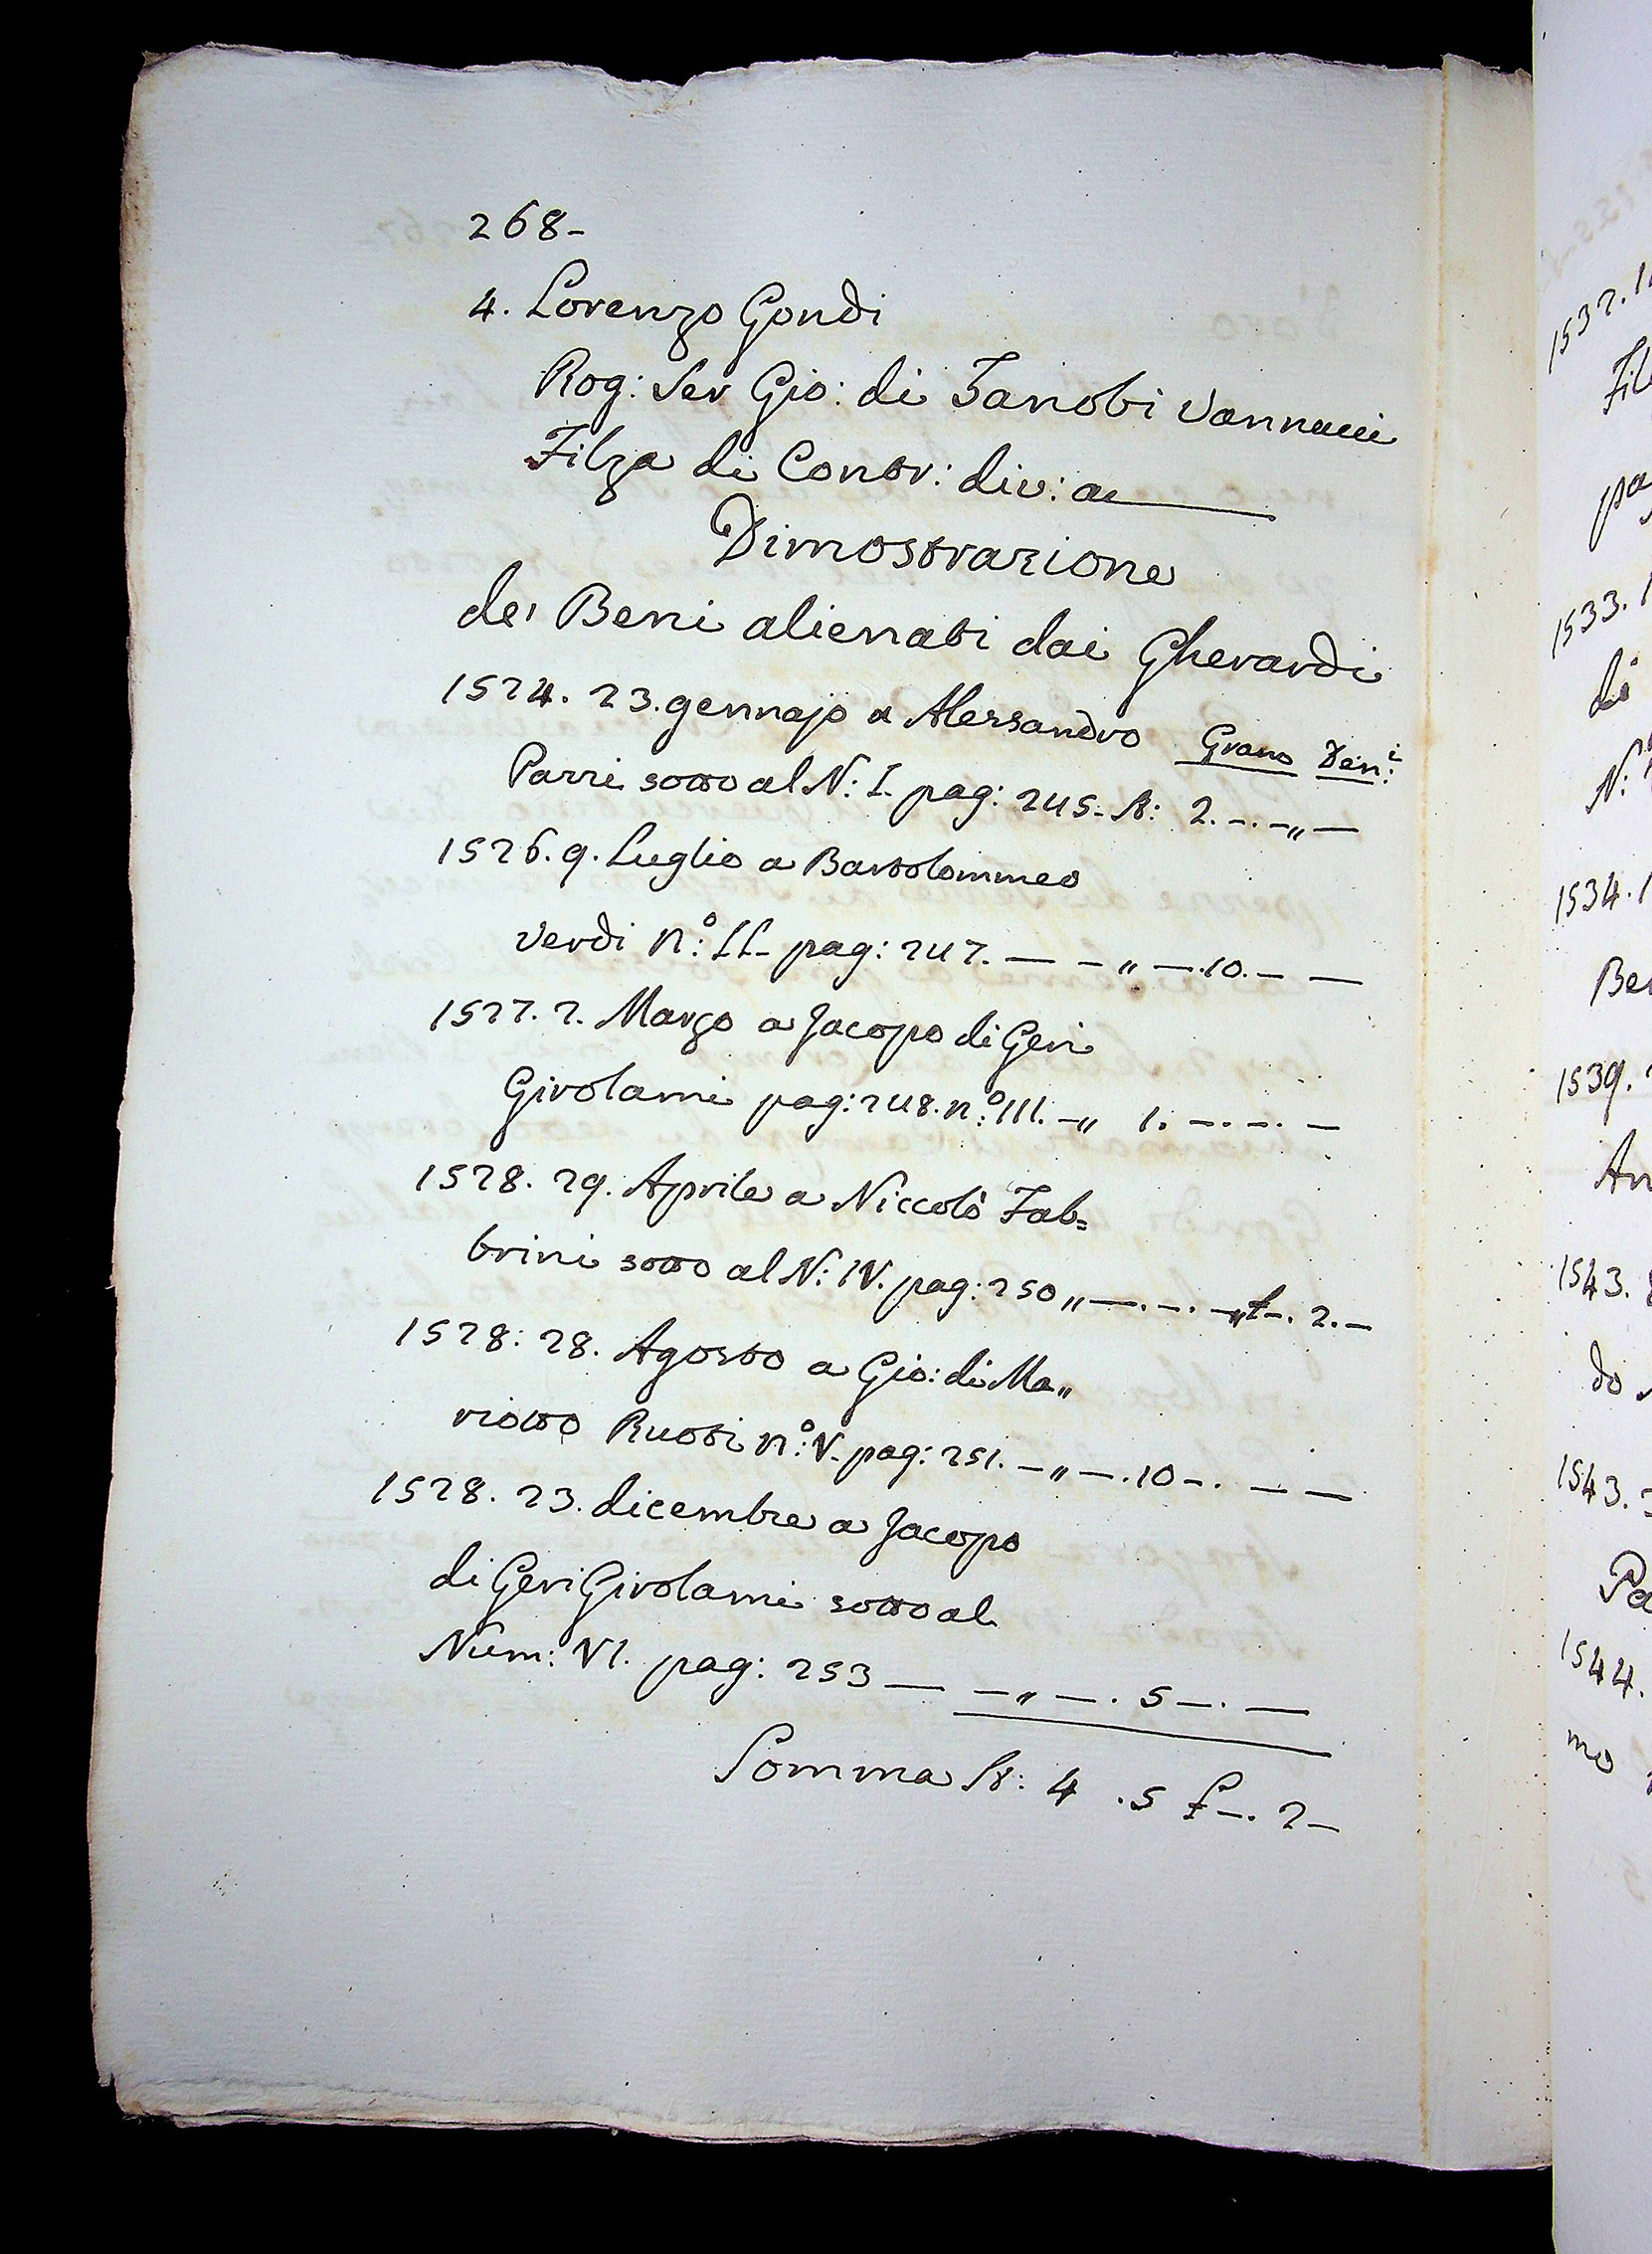 268-
4. Lorenzo Gondi
Rog: Ser Gio: di Zanobi Vannucci
Filza di Contr: div: a
Dimostrazione
de' Beni alienati dai Gherardi
1524. 23. gennajo a Alessandro Grano Den:i
Parri sotto al N: I. pag: 245- St: 2. -. -„ —
1526. 9. Luglio a Bartolommeo
Verdi n:o II- pag: 247. — - „ —.10. — —
1527. 2. Marzo a Jacopo di Geri
Girolami pag: 248. n:o III. -„ 1. -. -. —
1528. 29. Aprile a Niccolò Fab=
brini sotto al N: IV. pag: 250 „ —. -. -„ £ -. 2. —
1528: 28. Agosto a Gio: di Ma„
riotto Ruoti n:o V. pag: 251. -„ —. 10 -. — —
1528. 23. dicembre a Jacopo
di Geri Girolami sotto al
Num: VI. pag: 253 — -„ —. 5 —. —
Somma St: 4 .5 £ -. 2 -
1532. 1
Fil
pa
1533. 1
di
N:
1534. 1
Be
1539.
An
1543.
do
1543.
Pa
1544.
mo